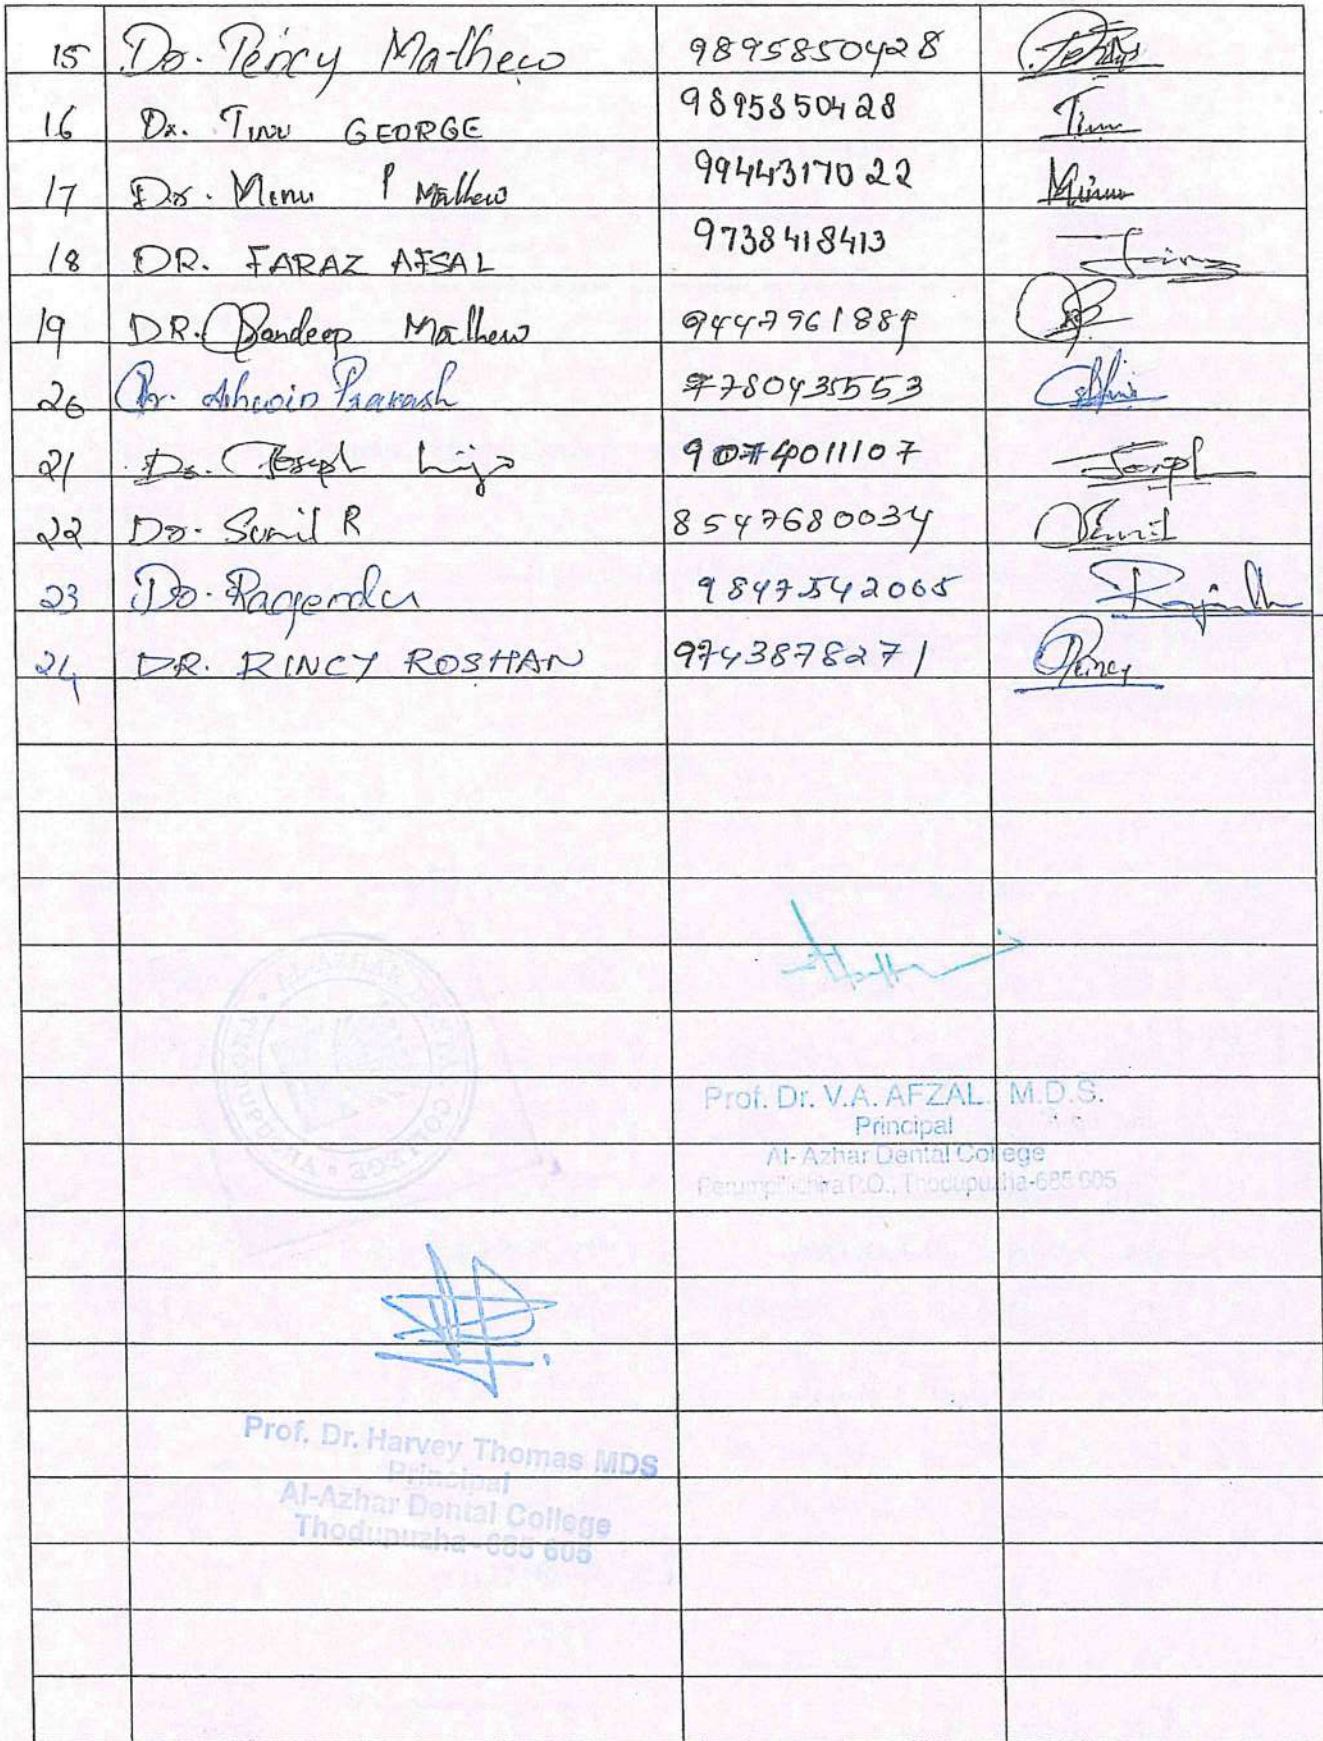 15 Dr. Percy Mathew 9895850428
16 Dr. Tinu GEORGE 9895850428 Tinu
17 Dr. Minu P Mathew 9944317022 Minu
18 DR. FARAZ AFSAL 9738418413
19 DR. Sandeep Mathew 9447961889
20 Dr. Ashwin Prakash 7780435553
21 Dr. Joseph Lijo 9074011107 Joseph
22 Dr. Sunil R 8547680034 Sunil
23 Dr. Ragendu 9847542065
24 DR. RINCY ROSHAN 9743878271 Rincy
AL-AZHAR DENTAL COLLEGE • THODUPUZHA •
Prof. Dr. V.A. AFZAL. M.D.S.
Principal
Al-Azhar Dental College
Perumpillichira P.O., Thodupuzha-685 605
Prof. Dr. Harvey Thomas MDS
Principal
Al-Azhar Dental College
Thodupuzha-685 605